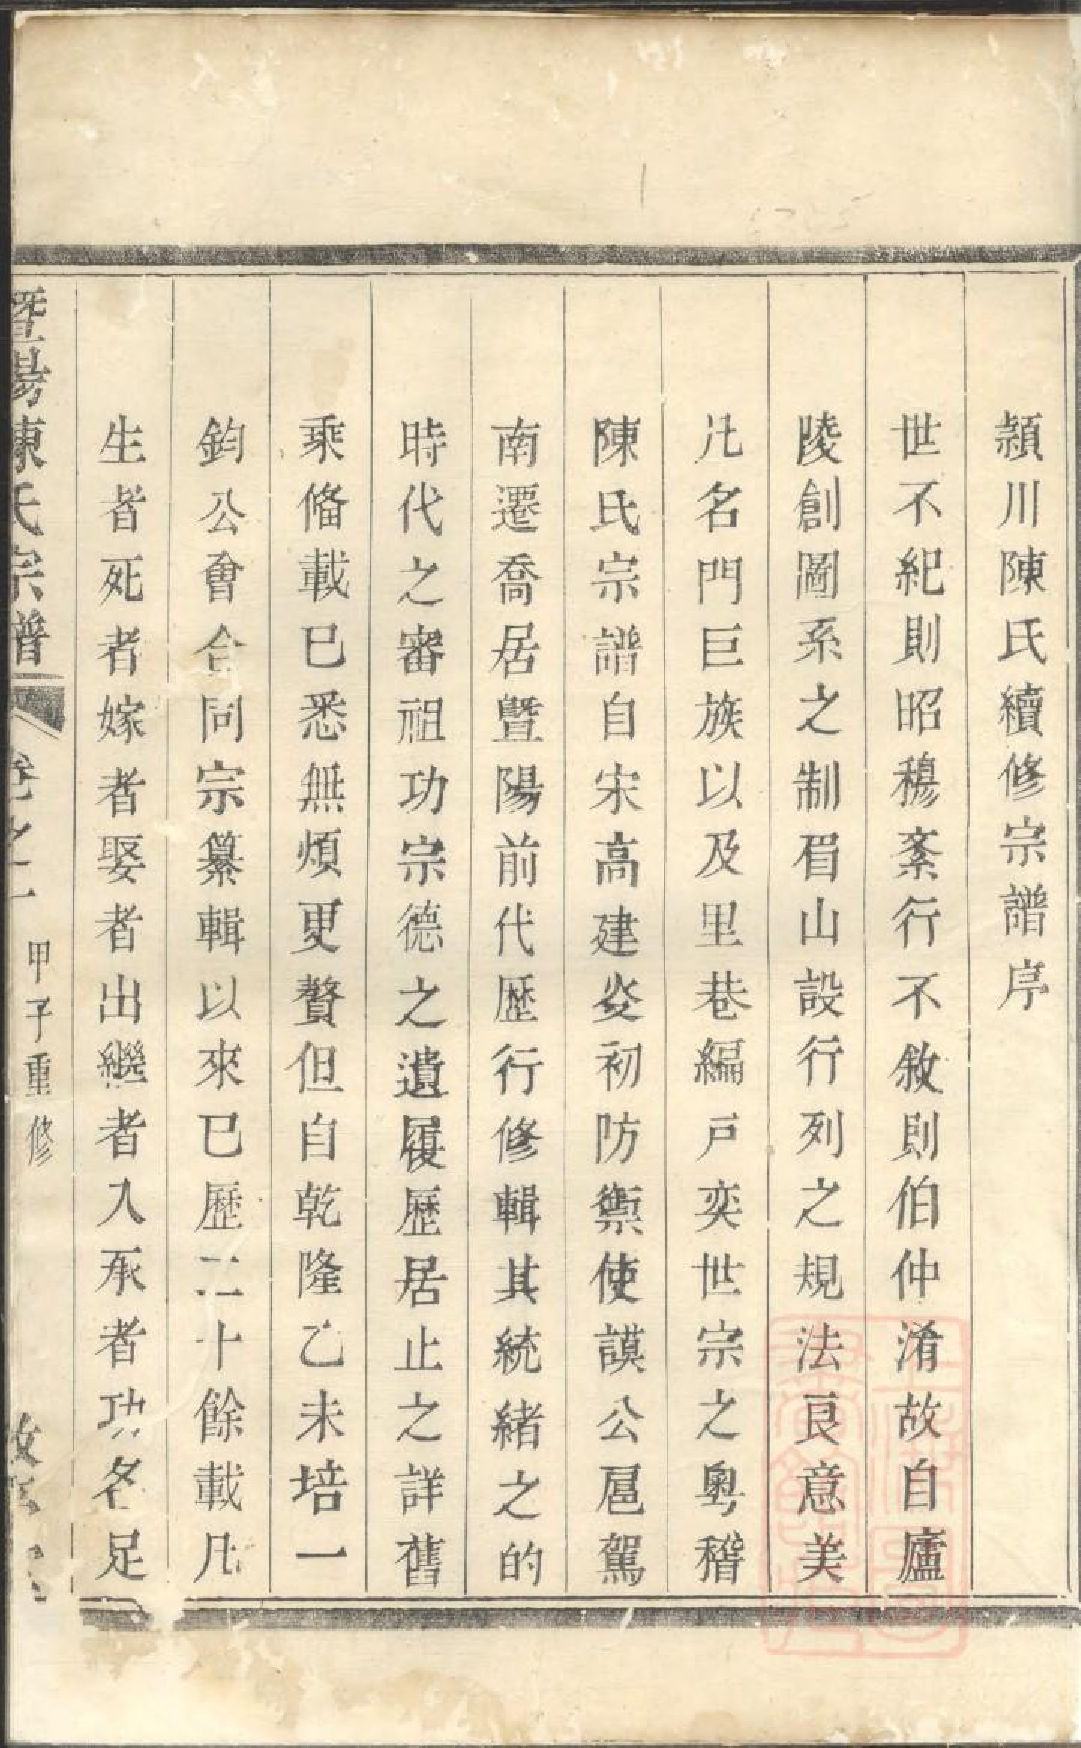 潁川陳氏續修宗譜序
世不紀則昭穆紊行不敘則伯仲淆故自廬
陵創圖系之制眉山設行列之規法良意美
凡名門巨族以及里巷編戸奕世宗之粵稽
陳氏宗譜自宋高建炎初防禦使謨公扈駕
南遷喬居曁陽前代歴行修輯其統緒之的
時代之審祖功宗德之遺履歷居止之詳舊
乘俻載已悉無煩更贅但自乾隆乙未培一
鈞公會合同宗纂輯以來已歷二十餘載凡
生者死者嫁者娶者出繼者入承者功名足
暨陽陳氏宗譜 卷之一 甲子重修